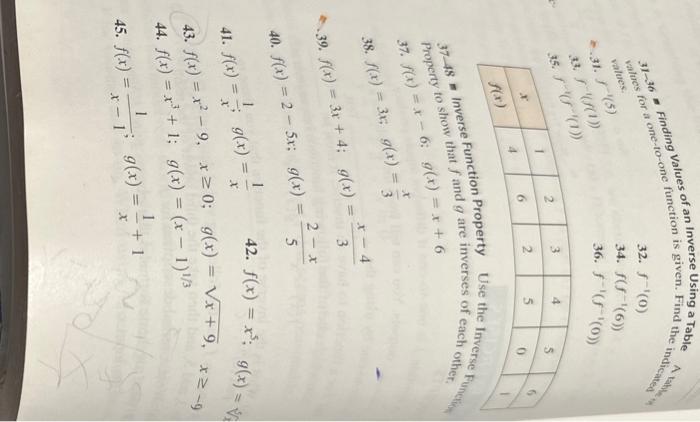 31–36 ■ Finding Values of an Inverse Using a Table A table
values for a one-to-one function is given. Find the indicated
values.
31. f⁻¹(5) 32. f⁻¹(0)
33. f⁻¹(f(1)) 34. f(f⁻¹(6))
35. f⁻¹(f⁻¹(1)) 36. f⁻¹(f⁻¹(0))
x 1 2 3 4 5 6
f(x) 4 6 2 5 0 1
37–48 ■ Inverse Function Property Use the Inverse Function
Property to show that f and g are inverses of each other.
37. f(x) = x − 6; g(x) = x + 6
38. f(x) = 3x; g(x) = x/3
39. f(x) = 3x + 4; g(x) = (x − 4)/3
40. f(x) = 2 − 5x; g(x) = (2 − x)/5
41. f(x) = 1/x; g(x) = 1/x 42. f(x) = x⁵; g(x) =
43. f(x) = x² − 9, x ≥ 0; g(x) = √(x + 9), x ≥ −9
44. f(x) = x³ + 1; g(x) = (x − 1)^(1/3)
45. f(x) = 1/(x − 1); g(x) = 1/x + 1